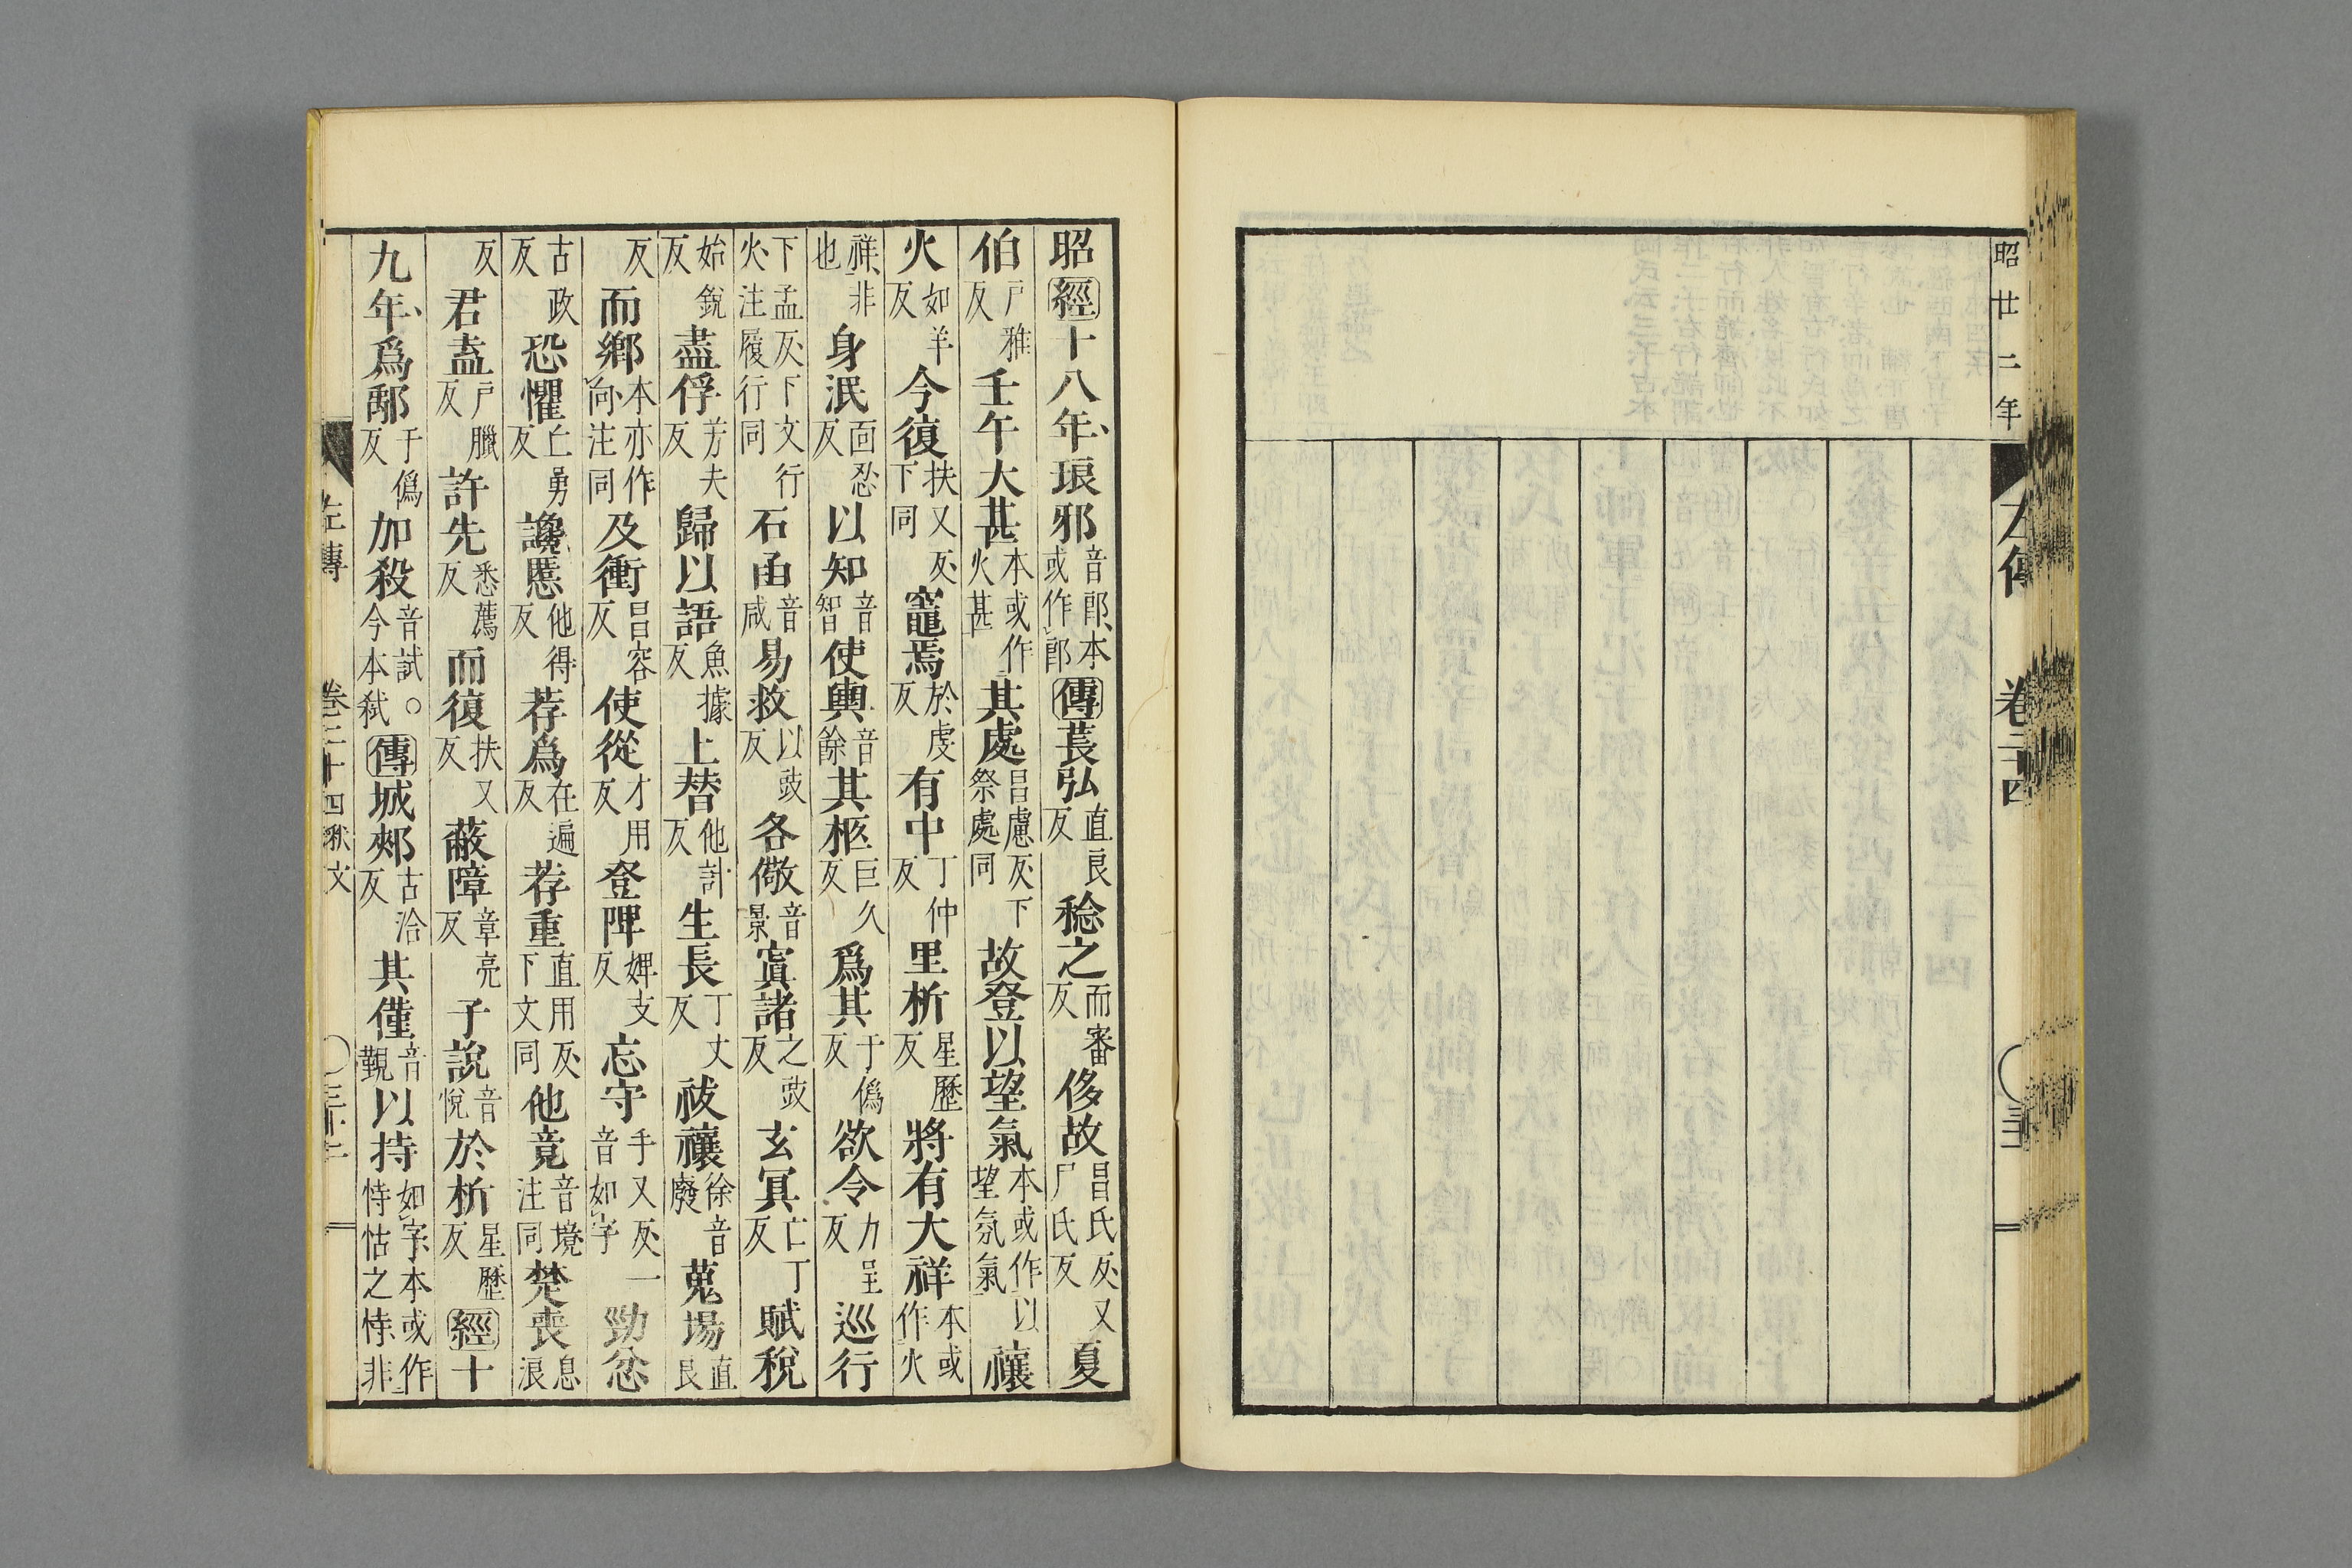 昭廿二年
左傳 卷二十四
昭經十八年、琅邪音郎、本或作郎傳萇弘直良反稔之而審反侈故昌氏反、又尸氏反夏
伯戶雅反壬午大甚本或作火甚其處昌慮反、下祭處同故登以望氣本或作以望氛氣禳
火如羊反今復扶又反、下同竈焉於虔反有中丁仲反里析星歷反將有大祥本或作火
祥、非也身泯面忍反以知音智使輿音餘其柩巨久反爲其于僞反欲令力呈反巡行
下孟反、下文行火、注履行同石函音咸易救以豉反各儆音景寘諸之豉反玄冥亡丁反賦稅
始銳反盡俘芳夫反歸以語魚據反上替他計反生長丁丈反祓禳徐音廢蒐場直良
反而鄉本亦作向、注同及衝昌容反使從才用反登陴婢支反忘守手又反、一音如字勁忿
古政反恐懼亡勇反讒慝他得反荐爲在遍反荐重直用反、下文同他竟音境、注同楚喪息浪
反君盍戶臘反許先悉薦反而復扶又反蔽障章亮反子說音悅於析星歷反經十
九年、爲鄅于僞反加殺音試。今本弒傳城郟古洽反其僅音覲以持如字、本或作恃怙之恃、非
左傳 卷二十四釈文 ○三十二